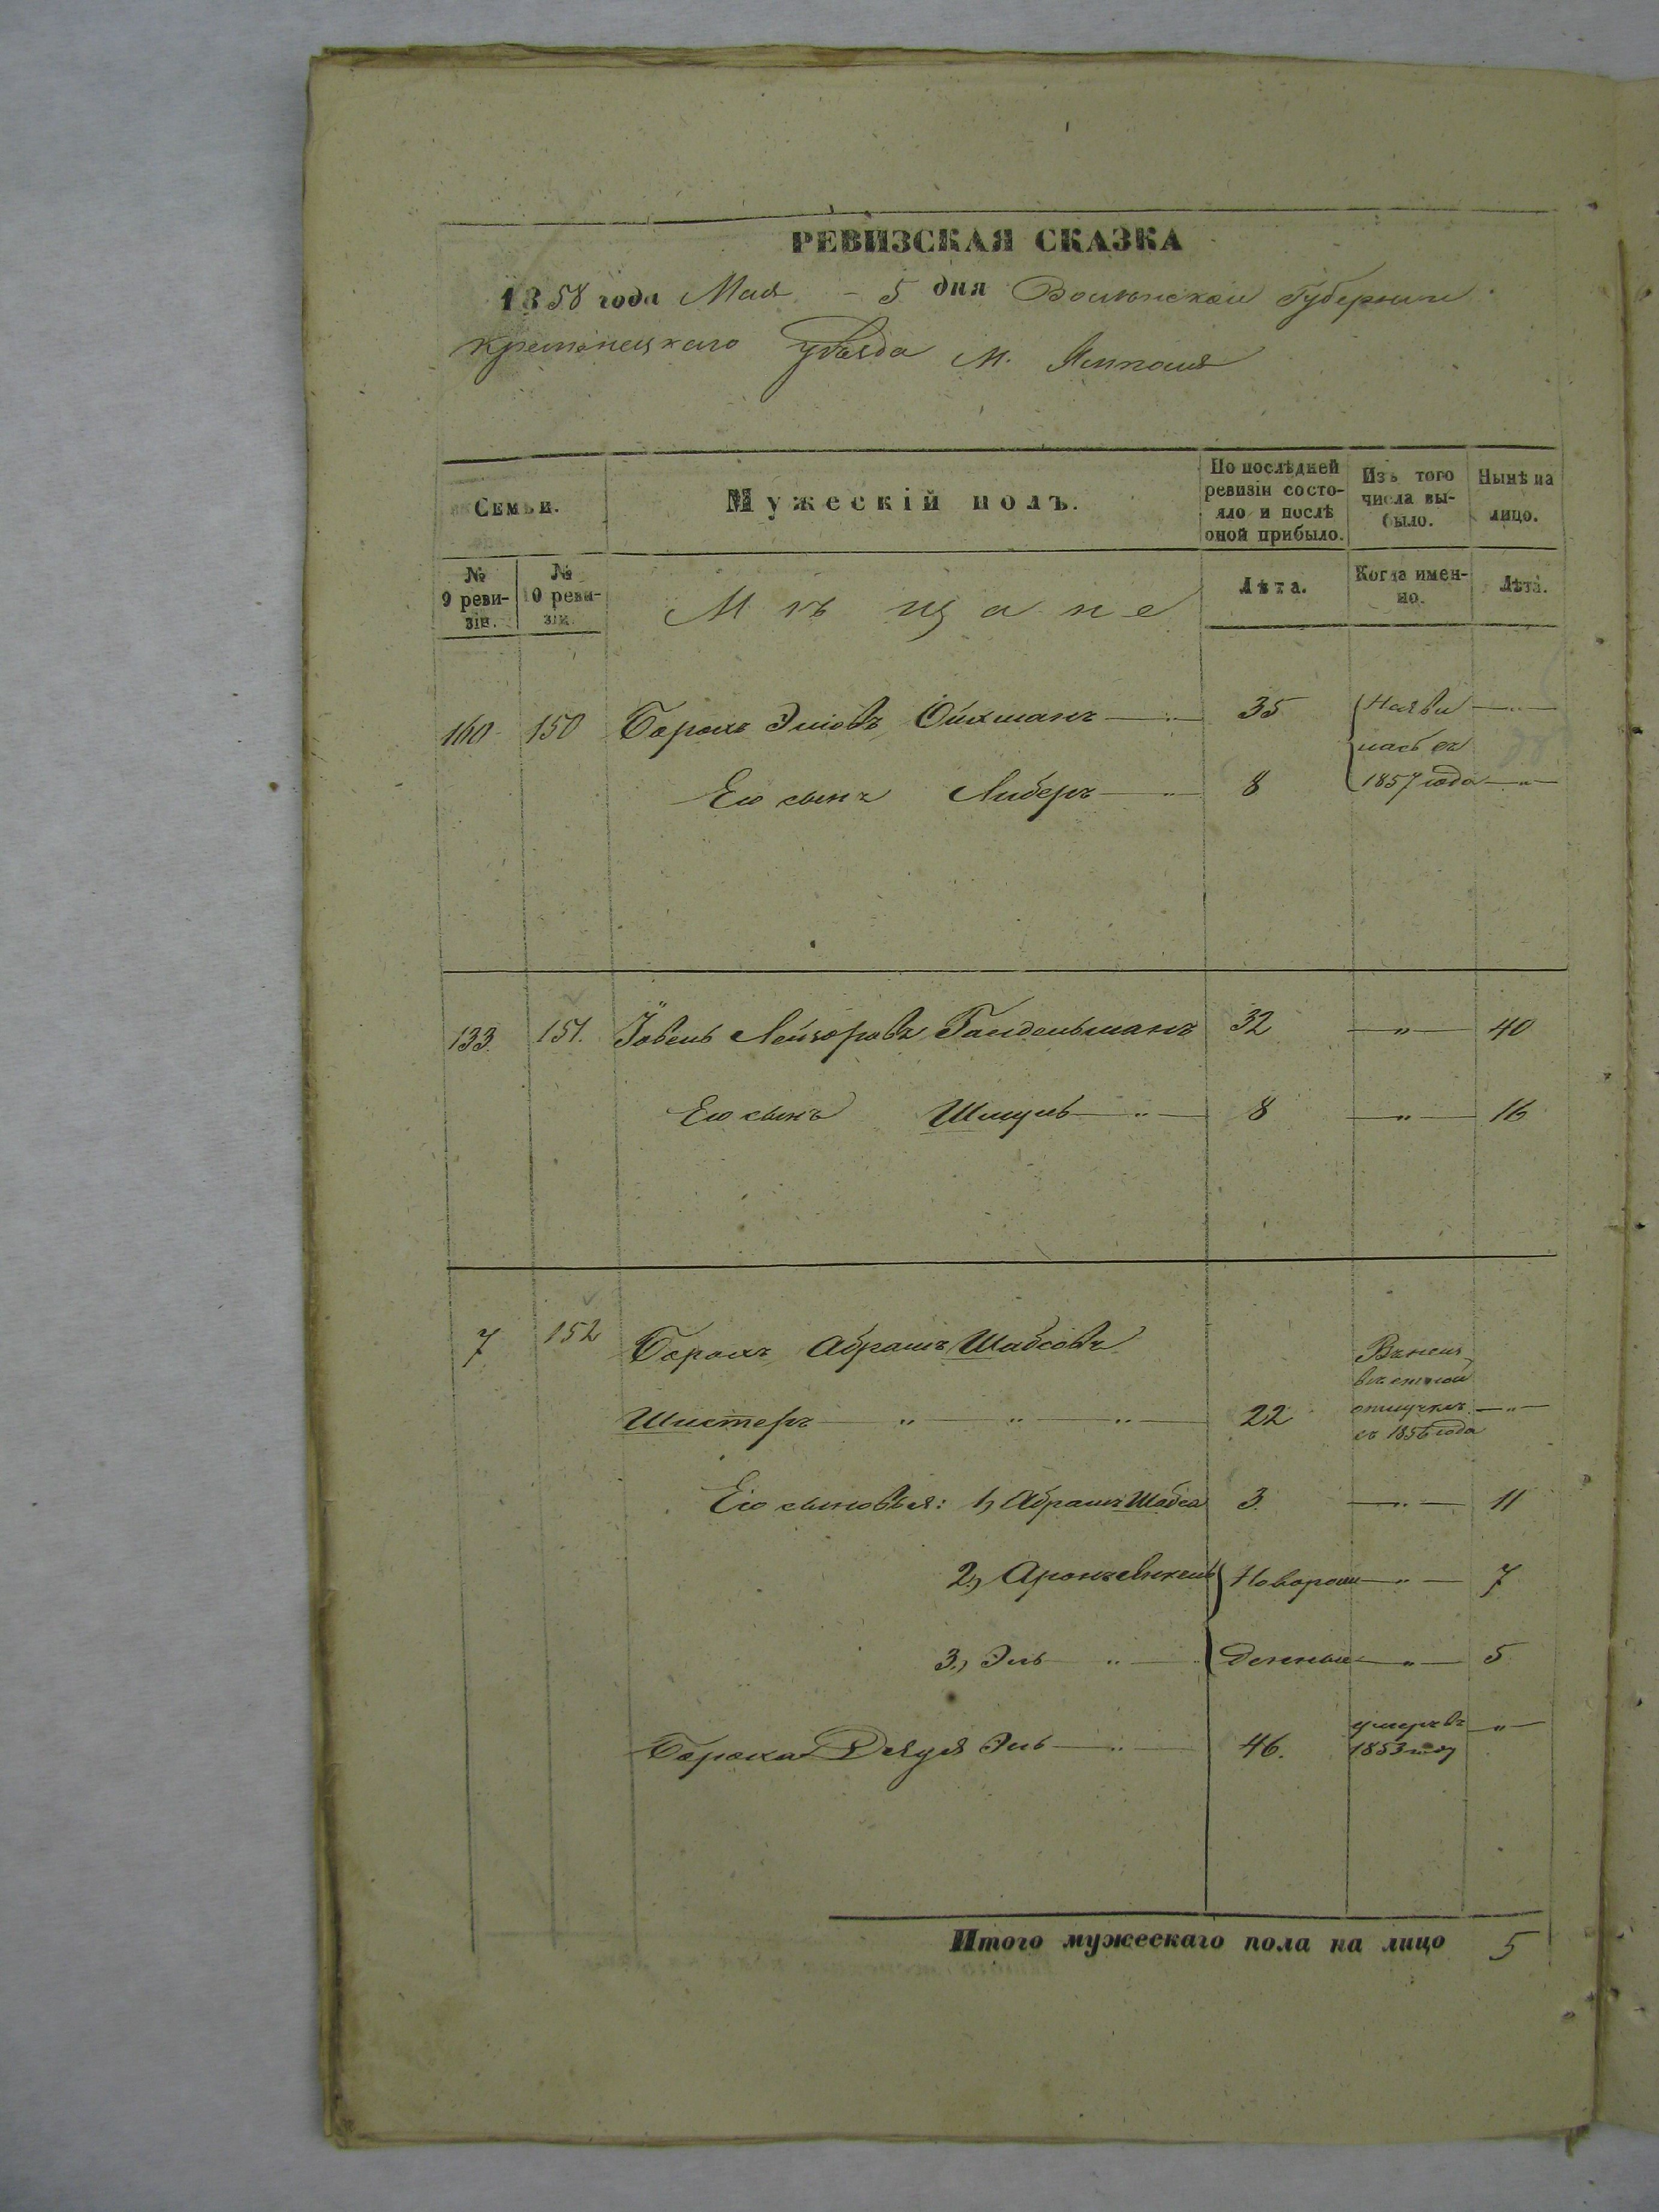 РЕВИЗСКАЯ СКАЗКА
1858 года Мая 5 дня Волынской Губернии
Кременецкаго уѣзда М. Ямполя
Семьи.
Мужескій полъ.
По послѣдней ревизіи состояло и послѣ оной прибыло.
Изъ того числа выбыло.
Нынѣ на лицо.
№ 9 ревизіи.
№ 10 ревизіи.
Мѣщане
Лѣта.
Когда именно.
Лѣта.
160 150 Борохъ Эліовъ Ойхманъ 35
Его сынъ Либеръ 8 1857 года
133 151. Іовель Лейзоровъ Гандельманъ 32 — " — 40
Его сынъ Шмуль — " — 8 — " — 16
7 152 Борохъ Абрамъ Шабсовъ
Шистеръ — " — " — " — 22 отлучкѣ — " —
съ 1856 года
Его сыновья: 1, Абрамъ Шабса 3. — " — 11
2, Аронъ Новорож — " — 7
3, Эль — " — денныи — " — 5
Бороха Дядя Эль — " — 46. умеръ въ — " —
1853 году
Итого мужескаго пола на лицо 5